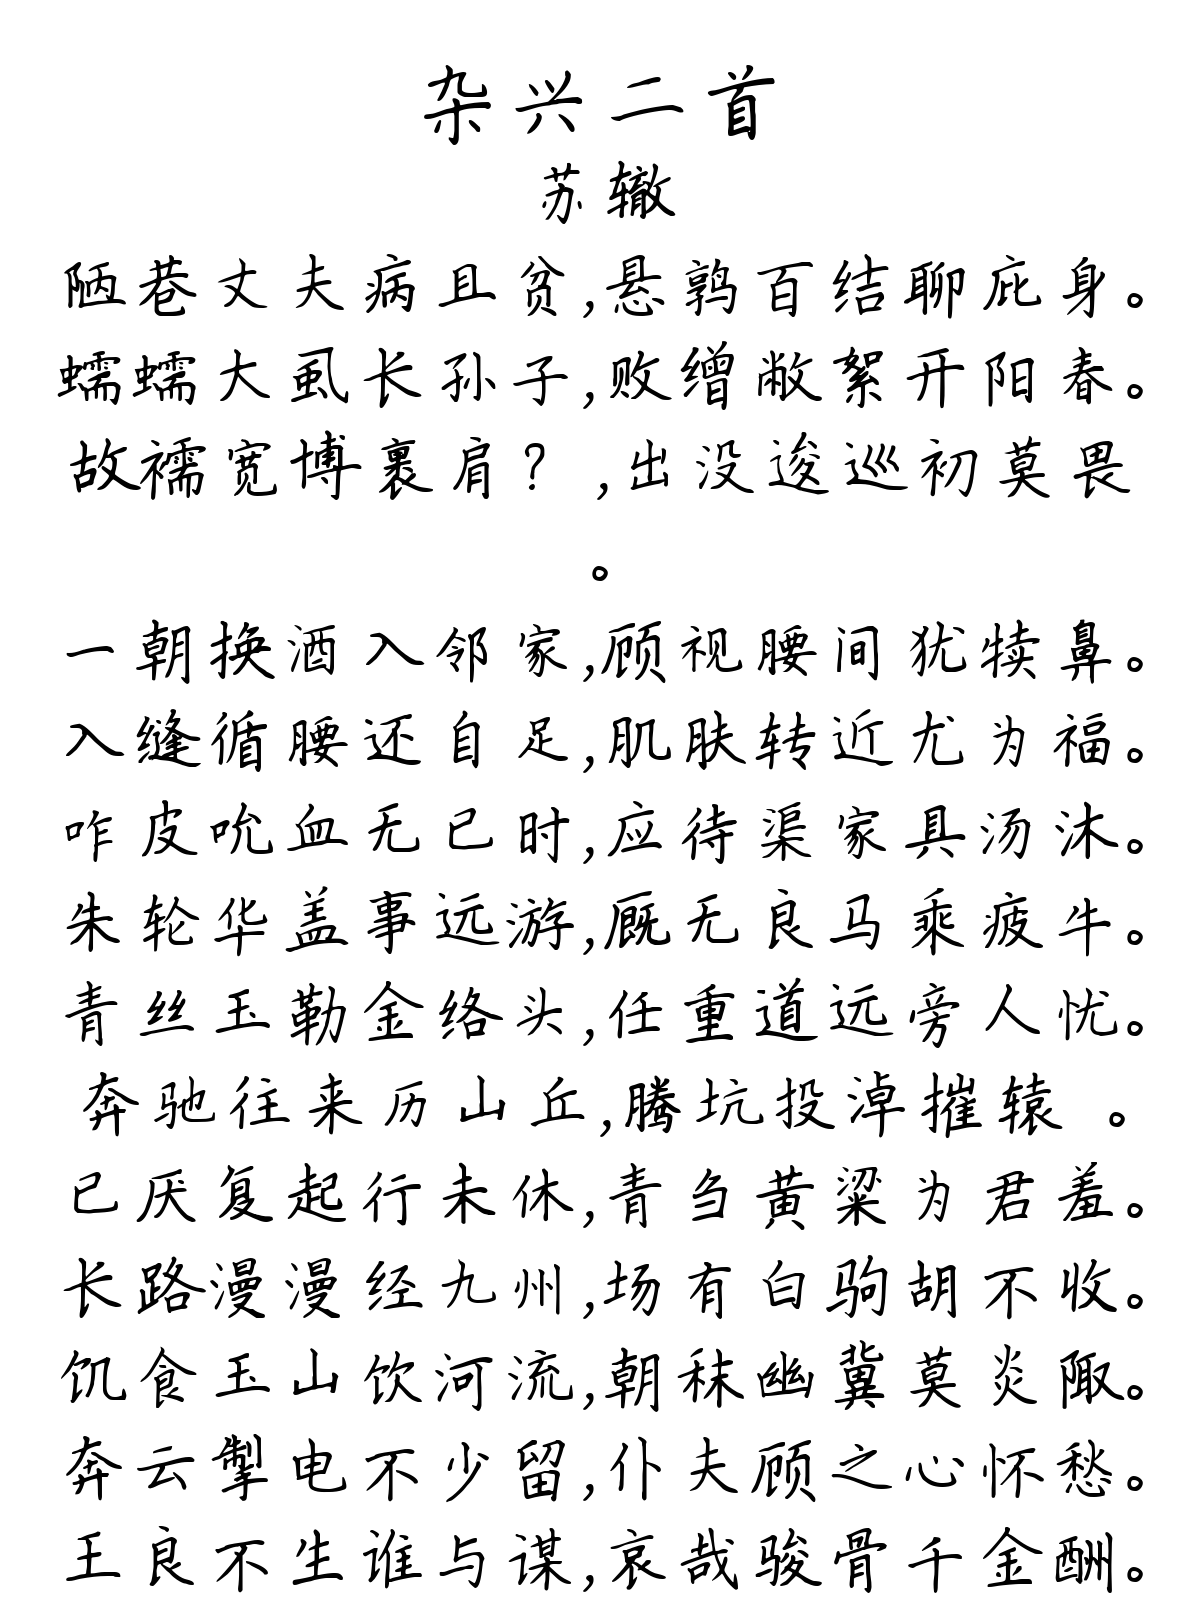 杂兴二首
苏辙
陋巷丈夫病且贫,悬鹑百结聊庇身。
蠕蠕大虱长孙子,败缯敝絮开阳春。
故襦宽博裹肩？,出没逡巡初莫畏
。
一朝换酒入邻家,顾视腰间犹犊鼻。
入缝循腰还自足,肌肤转近尤为福。
咋皮吮血无已时,应待渠家具汤沐。
朱轮华盖事远游,厩无良马乘疲牛。
青丝玉勒金络头,任重道远旁人忧。
奔驰往来历山丘,腾坑投淖摧辕 。
已厌复起行未休,青刍黄粱为君羞。
长路漫漫经九州,场有白驹胡不收。
饥食玉山饮河流,朝秣幽冀莫炎陬。
奔云掣电不少留,仆夫顾之心怀愁。
王良不生谁与谋,哀哉骏骨千金酬。